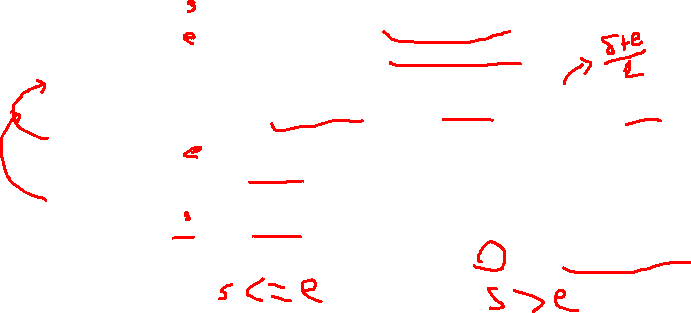 s
e
s+e
2
e
s
s<=e
s>e